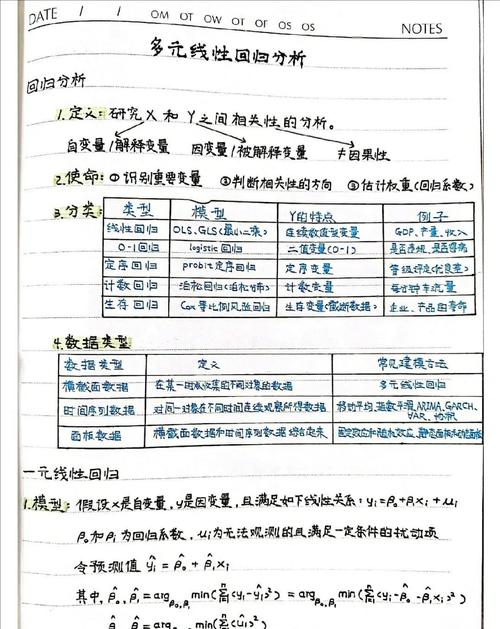 DATE / / OM OT OW OT OF OS OS NOTES
多元线性回归分析
回归分析
1.定义:研究X和Y之间相关性的分析。
自变量/解释变量 因变量/被解释变量 ≠因果性
2.使命:①识别重要变量 ②判断相关性的方向 ③估计权重(回归系数)
3.分类:
类型 模型 Y的特点 例子
线性回归 OLS、GLS(最小二乘) 连续数值型变量 GDP、产量、收入
0-1回归 logistic回归 二值变量(0-1) 是否违规、是否得病
定序回归 probit定序回归 定序变量 等级评定(优良差)
计数回归 泊松回归(泊松分布) 计数变量 每分钟车流量
生存回归 Cox等比例风险回归 生存变量(截断数据) 企业、产品的寿命
4.数据类型
数据类型 定义 常见建模方法
横截面数据 在某一时点收集的不同对象的数据 多元线性回归
时间序列数据 对同一对象在不同时间连续观察所得数据 移动平均、指数平滑、ARIMA、GARCH、VAR、协积
面板数据 横截面数据和时间序列数据结合起来 固定效应和随机效应、静态面板和动态面板
一元线性回归
1.模型:假设x是自变量,y是因变量,且满足如下线性关系:yᵢ=β₀+β₁xᵢ+μᵢ
β₀和β₁为回归系数,μᵢ为无法观测的且满足一定条件的扰动项
令预测值 ŷᵢ=β̂₀+β̂₁xᵢ
其中,β̂₀,β̂₁=arg_{β₀,β₁} min(Σ(yᵢ-ŷᵢ)²)=arg_{β₀,β₁} min(Σ(yᵢ-β̂₀-β̂₁xᵢ)²)
β̂₀,β̂₁=arg min(Σ(ûᵢ)²)